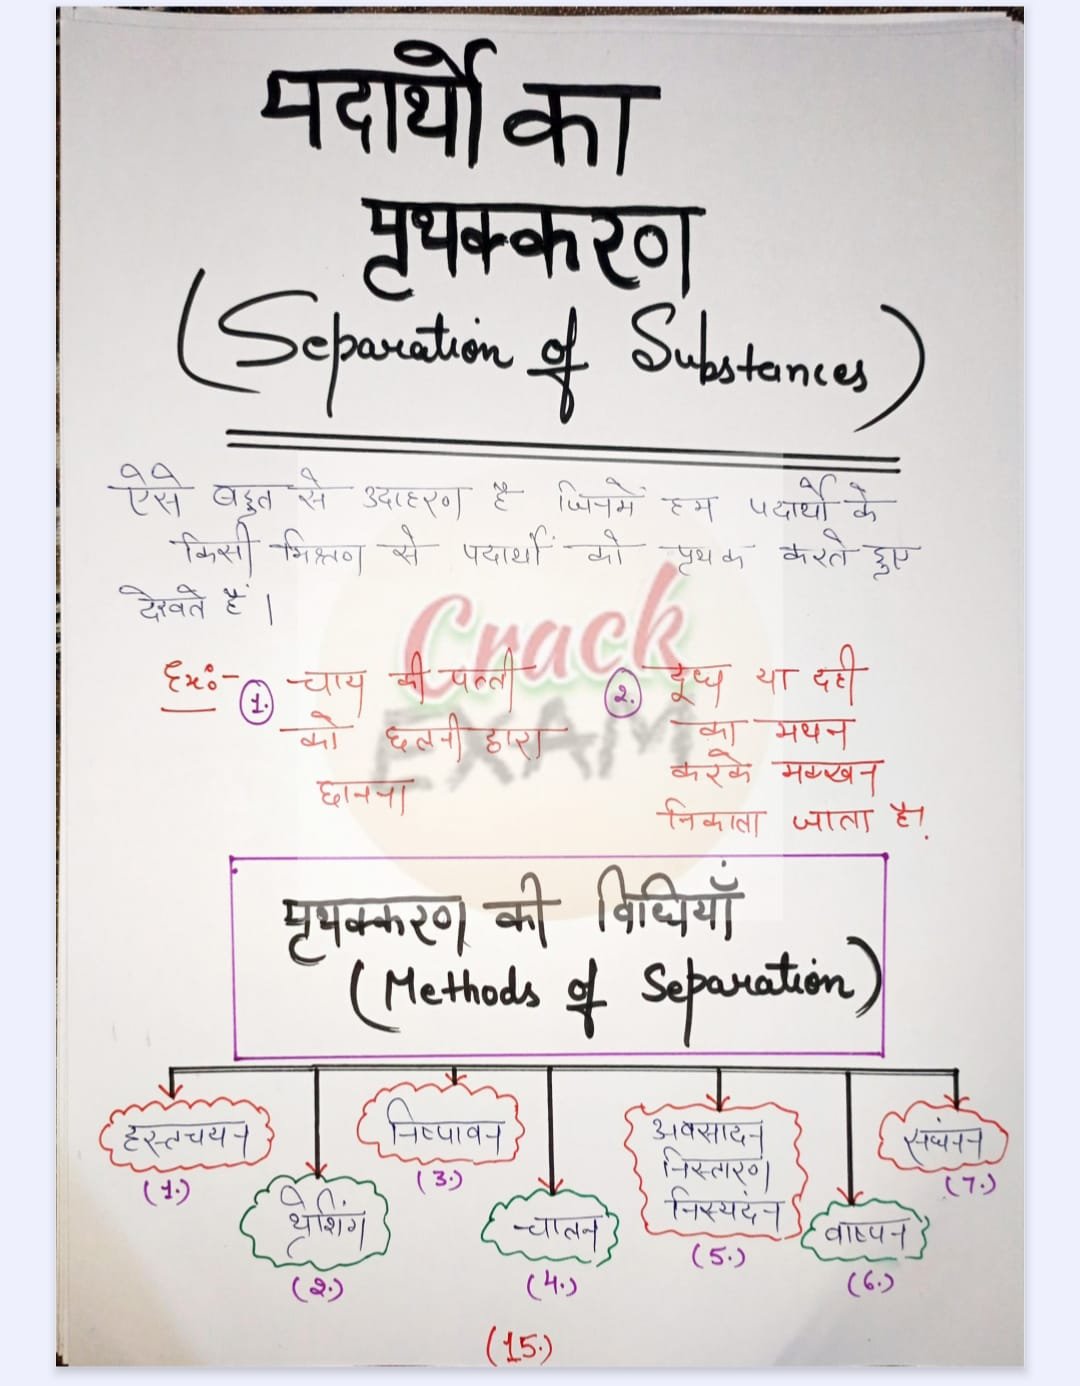 पदार्थो का
पृथक्करण
(Separation of Substances)
ऐसे बहुत से उदाहरण है जिनमें हम पदार्थो के
किसी मिश्रण से पदार्थों को पृथक करते हुए
देखते हैं ।
Ex:- 1. चाय की पत्ती
को छलनी द्वारा
छानना
2. दूध या दही
का मथन
करके मक्खन
निकाला जाता है।
Crack
EXAM
पृथक्करण की विधियाँ
(Methods of Separation)
हस्तचयन
(1.)
थ्रेशिंग
(2.)
निष्पावन
(3.)
चालन
(4.)
अवसादन
निस्तारण
निस्यंदन
(5.)
वाष्पन
(6.)
संघनन
(7.)
(15.)